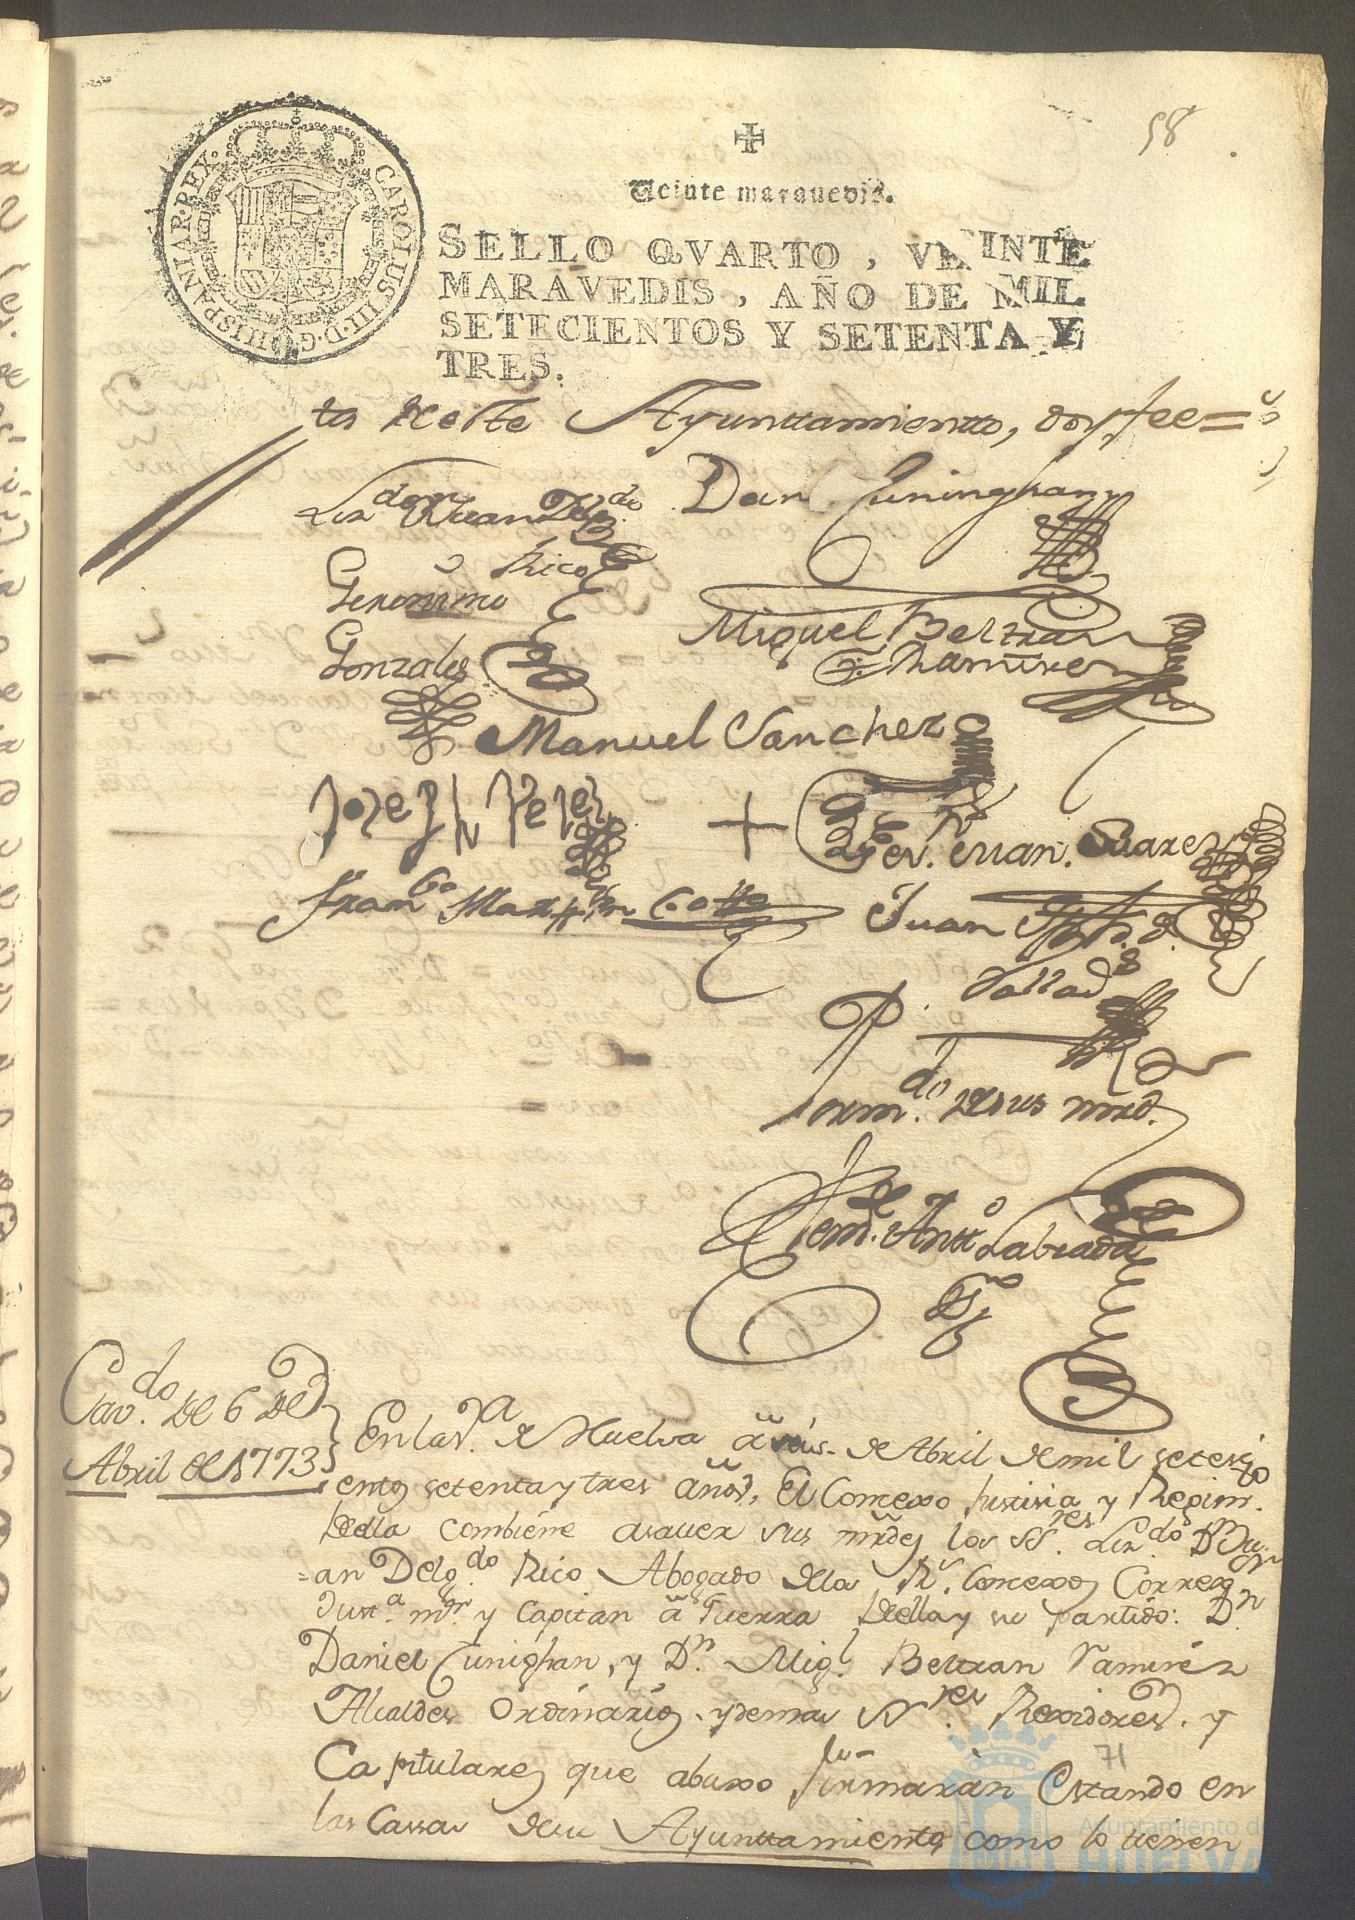 58
Veinte marauedis.
SELLO QVARTO, VEINTE
MARAVEDIS, AÑO DE MIL
SETECIENTOS Y SETENTA Y
TRES.
CAROLUS III·D·G·HISPANIAR·REX·
to deeste Ayunttamientto, doy fee =
Lizdo. Dn. Juan Delgdo.
Rico
Dan Cuninghan
Geronimo
Gonzales
Miguel Beltran
Ramirez
Manuel Sanchez
Joseph Perez
+
Juan Suarez
Franco. Martin Cotto
Juan
Pormdo. desus mrd.
Antto. Labrada
Cavdo. de 6 de
Abril de 1773
En la Va. de Huelva á seis de Abril de mil seteci
entos setenta y tres años, El Concexo Justicia y Regimto.
della combiene asauer sus mrdes los SSres. Lizdo. Dn. Ju-
=an Delgdo. Rico Abogado dela Rs. Concexos Corregr.
Justa. mor. y Capitan á Guerra della y su partido: Dn.
Daniel Cunighan, y Dn. Migl. Beltran Ramirez
Alcaldes Ordinarios, y demas SSres. Rexidores, y
Capitulares que abaxo firmarán Estando en
las Casas desu Ayunttamiento como lo tienen
71
Ayuntamiento de
HUELVA